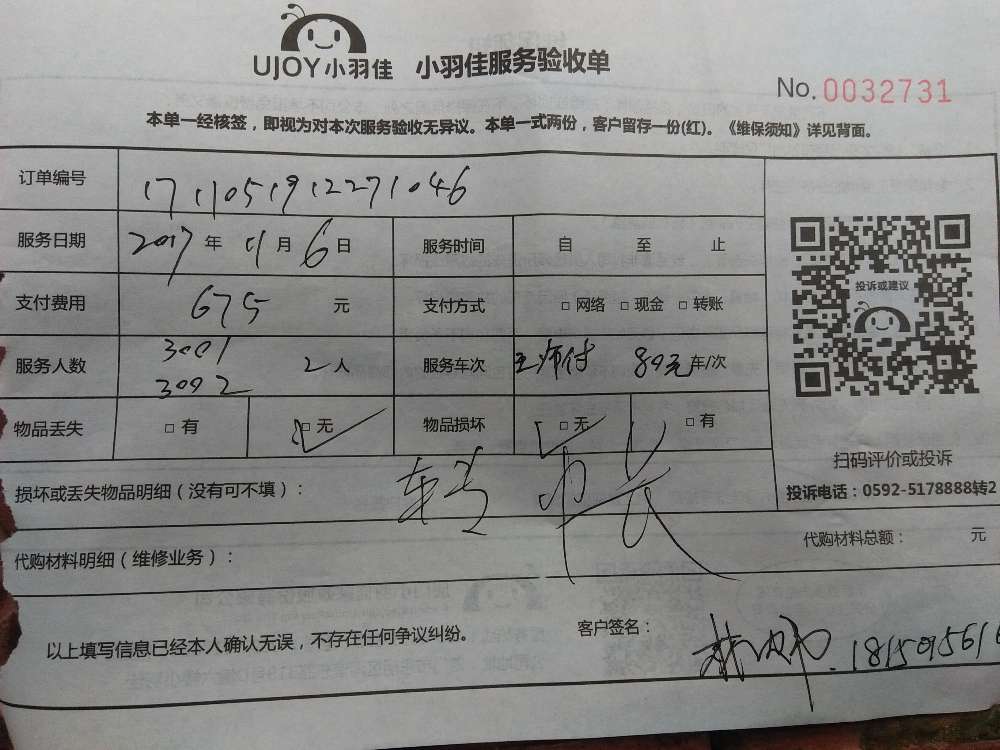 UJOY小羽佳 小羽佳服务验收单
No.0032731
本单一经核签，即视为对本次服务验收无异议。本单一式两份，客户留存一份(红)。《维保须知》详见背面。
订单编号 1711051912271046
服务日期 2017年 11月 6日 服务时间 自 至 止
支付费用 675 元 支付方式 □ 网络 □ 现金 □ 转账
服务人数 3001 3002 2人 服务车次 王师付 80元 车/次
物品丢失 □ 有 □ 无 物品损坏 □ 无 □ 有
投诉或建议
扫码评价或投诉
投诉电话：0592-5178888转2
损坏或丢失物品明细（没有可不填）：
代购材料明细（维修业务）： 代购材料总额： 元
以上填写信息已经本人确认无误，不存在任何争议纠纷。 客户签名： 1815095616